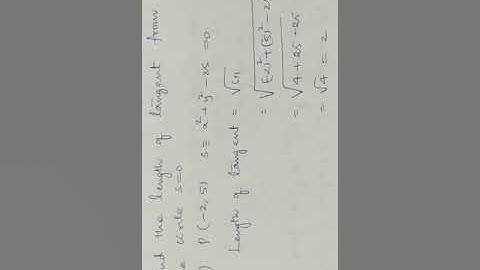 nd the length of tangent from
e circle S=0
) P(-2, 5) S ≡ x²+y²-25 =0
Length of tangent = √S₁₁
= √(-2)²+(5)²-2
= √4+25-25
= √4 = 2